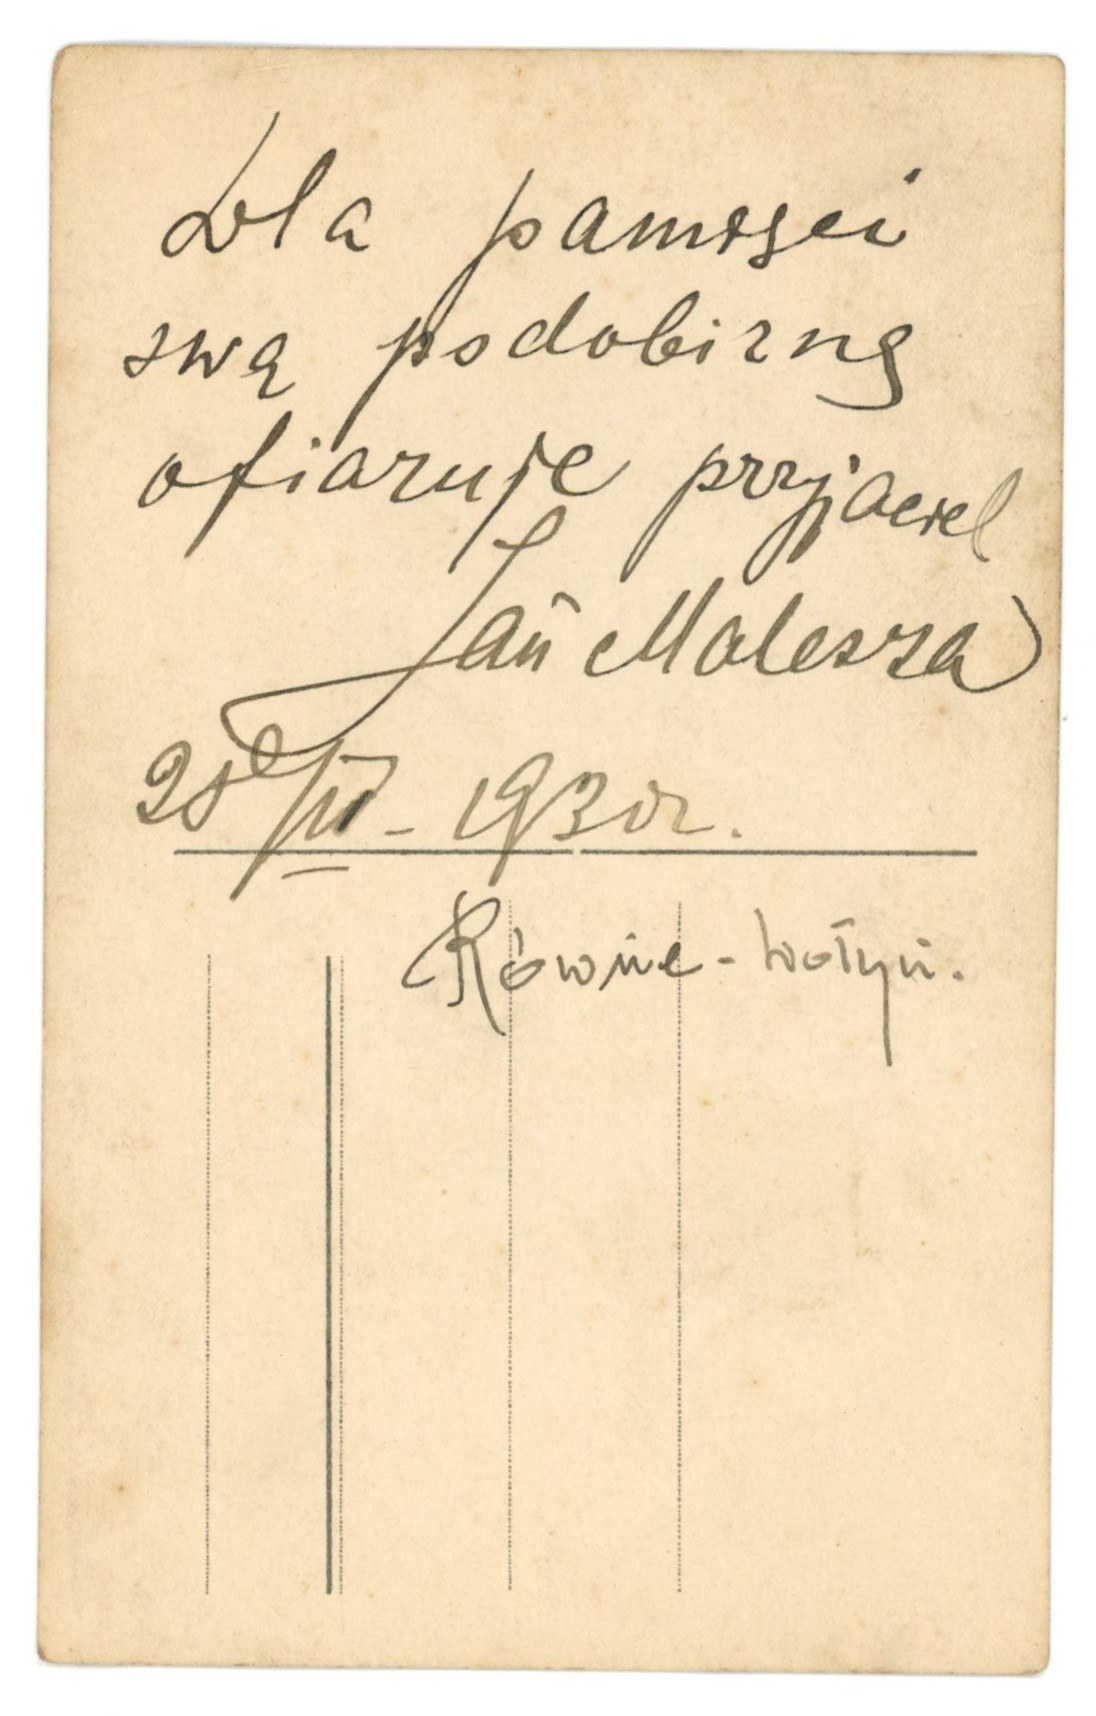 Dla pamięci
swą podobiznę
ofiaruje przyjaciel
Jan Malesza
28/IV - 1930r.
Równe - Wołyń.